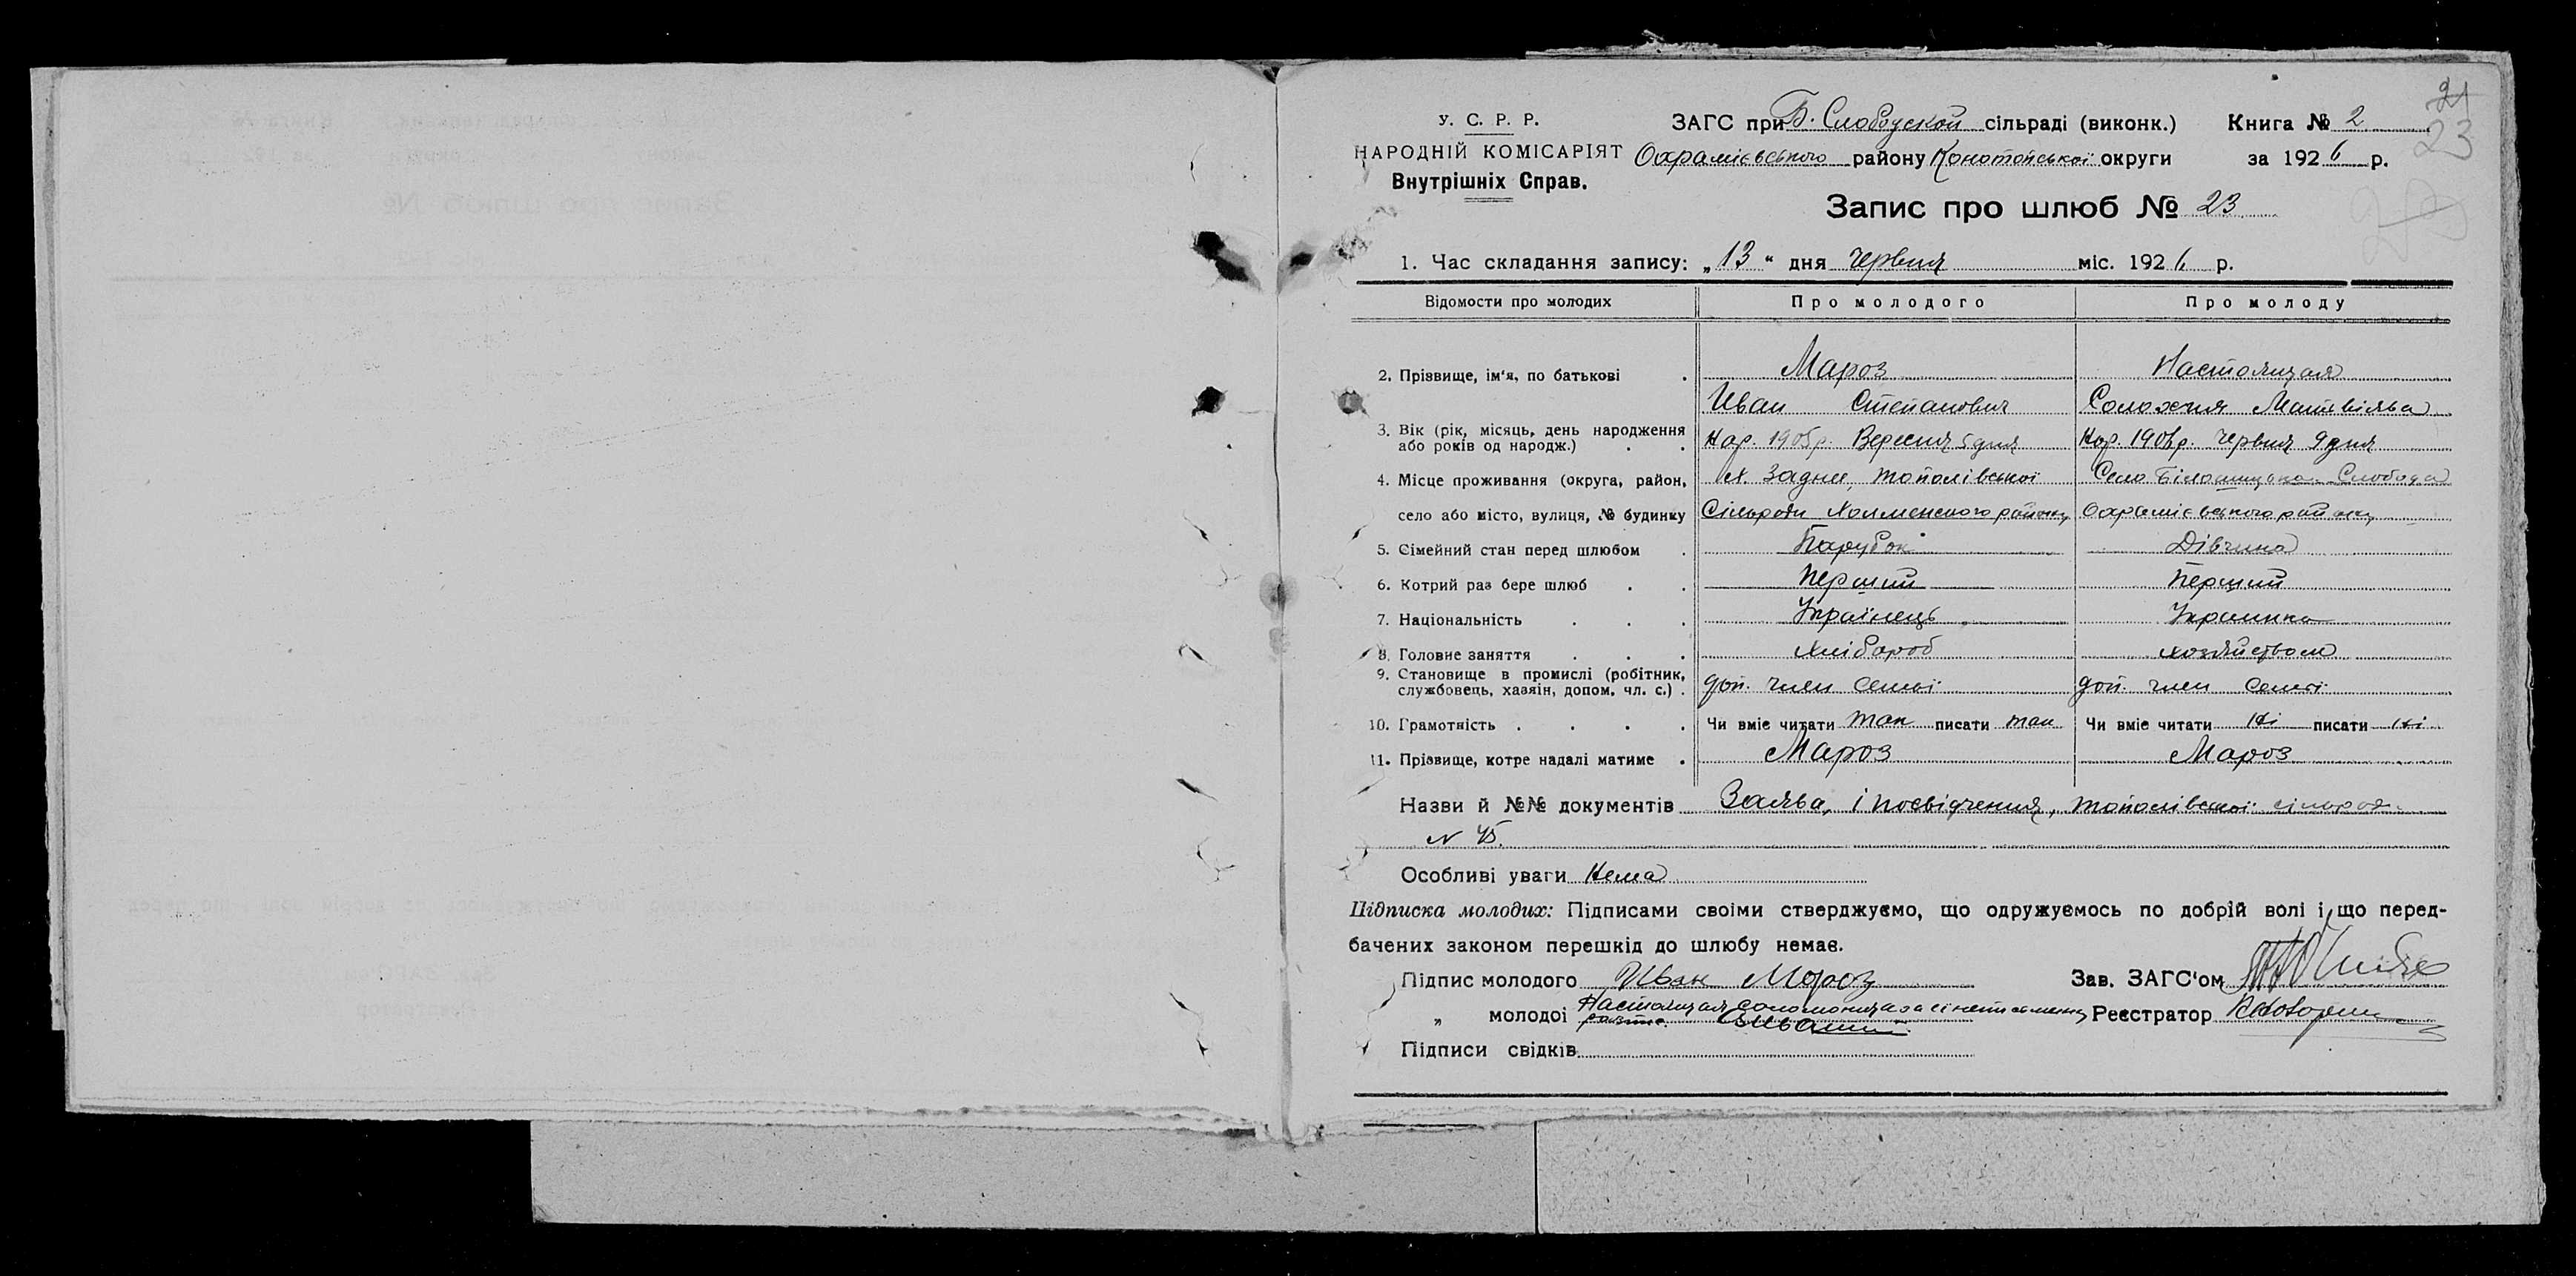 21
23
У. С. Р. Р.
НАРОДНІЙ КОМІСАРІЯТ
Внутрішніх Справ.
ЗАГС при Б. Слободской сільраді (виконк.) Книга № 2
Охрамієвського району Конотопської округи за 1926 р.
Запис про шлюб № 23
1. Час складання запису: „13“ дня червня міс. 1926 р.
Відомости про молодих Про молодого Про молоду
2. Прізвище, ім'я, по батькові . Мароз Настоящая
Иван Степанович Солохия Матвієва
3. Вік (рік, місяць, день народження
або років од народж.) . . Нар. 1905р. Вересня 5 дня Нар. 1906р. червня 9 дня
4. Місце проживання (округа, район, х. Заднє, тополівської Село Білошицька Слобода
село або місто, вулиця, № будинку Сільради Холменського району Охрамієвського району
5. Сімейний стан перед шлюбом . Парубок Дівчина
6. Котрий раз бере шлюб . . Перший Перший
7. Національність . . . Українець Украинка
8. Головне заняття . . . Хлібороб хозяйством
9. Становище в промислі (робітник,
службовець, хазяін, допом. чл. с.) . доп. член семьі доп. член семьі
10. Грамотність . . . . Чи вміє читати так писати так Чи вміє читати ні писати ні
11. Прізвище, котре надалі матиме . Мароз Мароз
Назви й №№ документів Заява, і посвідчення, тополівської сільрад.
N 45.
Особливі уваги Нема
Підписка молодих: Підписами своїми стверджуємо, що одружуємось по добрій волі і що перед-
бачених законом перешкід до шлюбу немає.
Підпис молодого Иван Мороз Зав. ЗАГС'ом
„ молодоі Настоящая Реєстратор
Підписи свідків